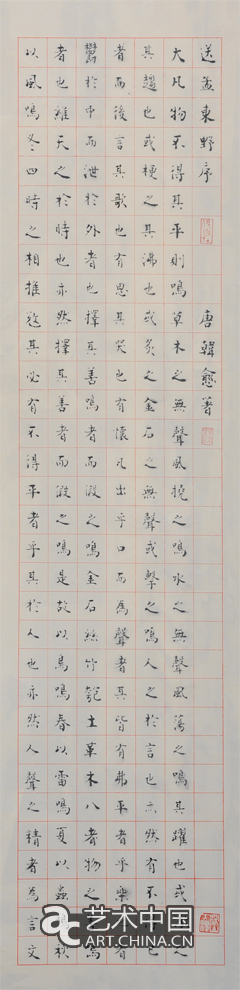 送孟東野序 唐韓愈著
大凡物不得其平則鳴草木之無聲風撓之鳴水之無聲風蕩之鳴其躍也或之
其趨也或梗之其沸也或炙之金石之無聲或擊之鳴人之於言也亦然有不已
者而後言其歌也有思其哭也有懷凡出乎口而為聲者其皆有弗平者乎樂者
鬱於中而泄於外者也擇其善鳴者而假之鳴金石絲竹匏土革木八者物之鳴
者也維天之於時也亦然擇其善者而假之鳴是故以鳥鳴春以雷鳴夏以蟲秋
以風鳴冬四時之相推敚其必有不得平者乎其於人也亦然人聲之精者為言文
艺术中国
ART.CHINA.CN